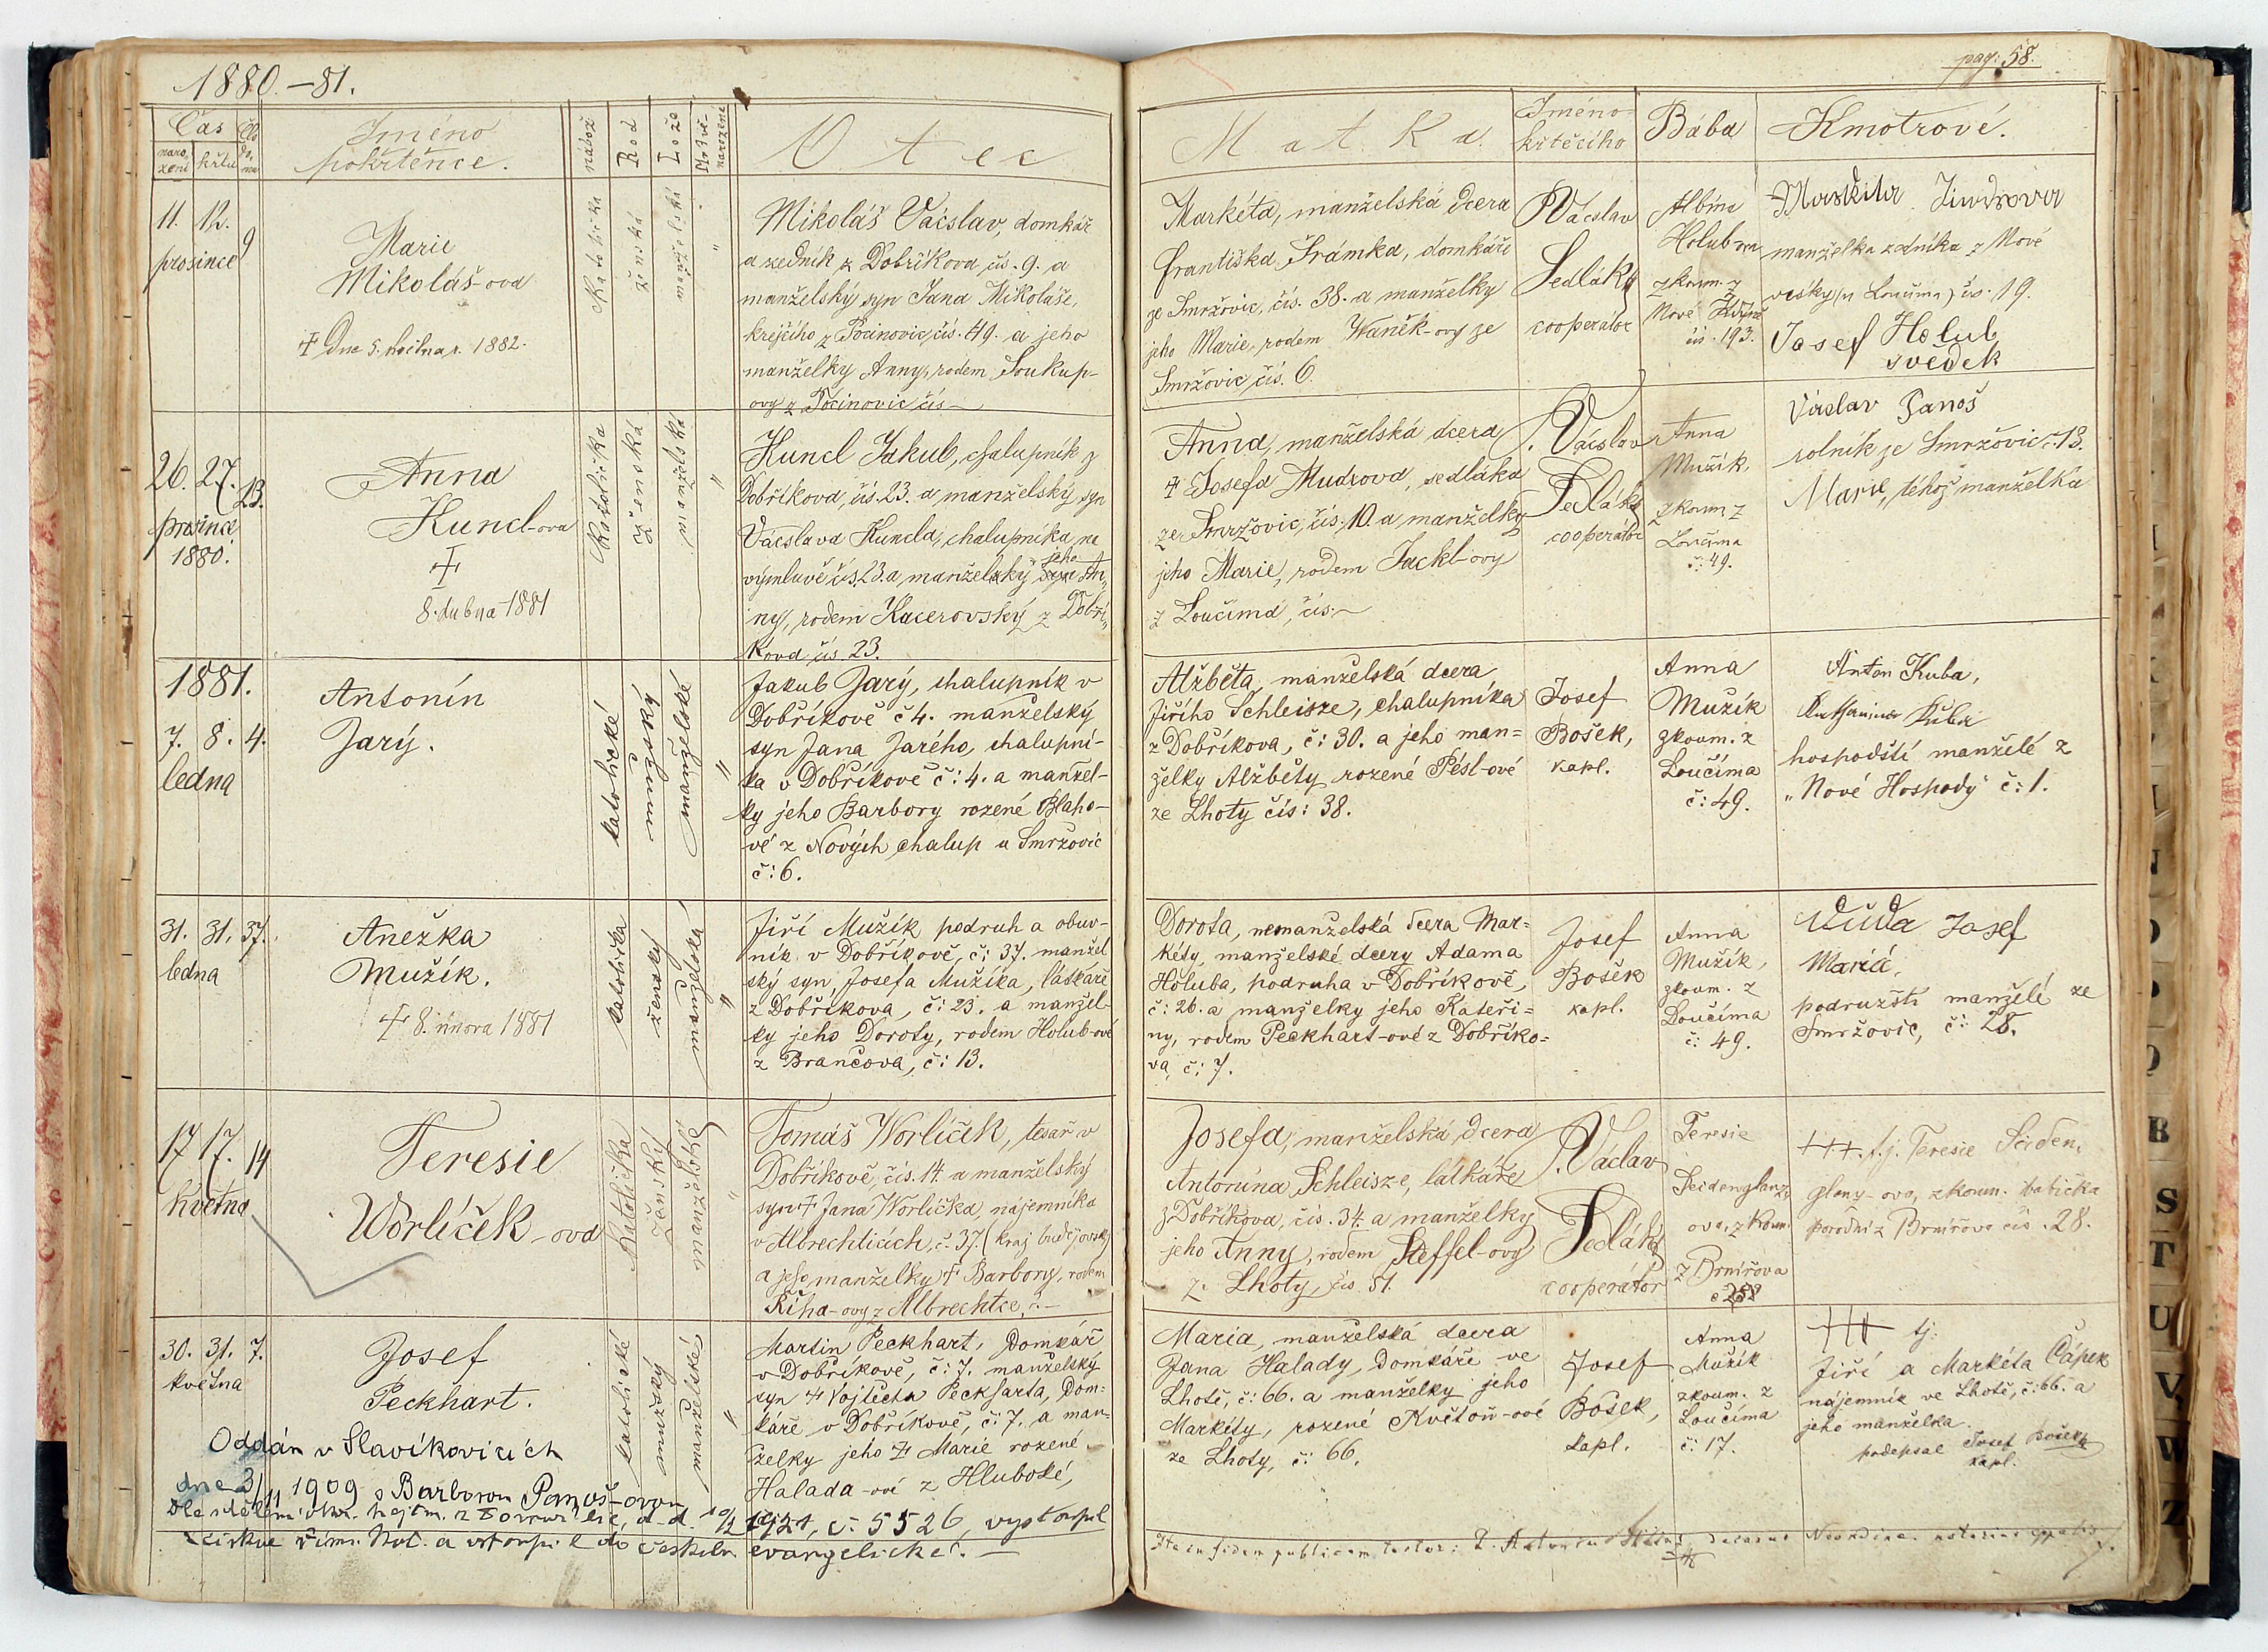 1880.-81.
pag: 58.
Čas
naro-
zení
křtu
Čís.
do-
mu
Jméno
pokřtěnce.
nábož.
Rod
Lože
Mrtvě-
narozené
Otec
Matka.
Jméno
křtěcího
Bába
Kmotrové.
11. 12. 9
prosince
Marie
Mikoláš-ova
+ dne 5. 1882.
Katolická
ženská
manželská
Mikoláš Václav, domkář
a zedník z Dobříkova čís. 9. a
manželský syn Jana Mikoláše,
krejčího z Pocinovic čís. 49. a jeho
manželky Anny, rodem Soukup-
ovy z Pocinovic čís —
Markéta, manželská dcera
Františka Šrámka, domkáře
ze Smržovic, čís. 38. a manželky
jeho Marie, rodem Waněk-ovy ze
Smržovic, čís. 6.
P. Václav
Sedláky
cooperátor
Albína
Holubova
zkoum. z
Nové Kdyně
čís. 193.
Markéta Jindrova
manželka zedníka z Nové
vesky (u Loučima) čís. 19.
Josef Holub
svědek
26. 27. 23.
prosince
1880.
Anna
Kuncl-ova
+
8. dubna 1881
Katolická
ženská
manželská
"
Kuncl Jakub, chalupník z
Dobříkova, čís. 23. a manželský syn
Václava Kuncla, chalupníka na
výmluvě čís. 23. a manželský syn jeho An-
ny, rodem Kacerovský z Dobří-
kova čís. 23.
Anna, manželská dcera
+ Josefa Mudrova, sedláka
ze Smržovic, čís. 10. a manželky
jeho Marie, rodem Jackl-ovy
z Loučima, čís. —
P. Václav
Sedláky
cooperátor
Anna
Mužík,
zkoum z
Loučima
č: 49.
Václav Janoš
rolník ze Smržovic č. 13.
Marie, téhož manželka
1881.
7. 8. 4.
ledna
Antonín
Jarý.
katolické
mužský
manželské
"
Jakub Jarý, chalupník v
Dobříkově č 4. manželský
syn Jana Jarého, chalupní-
ka v Dobříkově č: 4. a manžel-
ky jeho Barbory rozené Blaho-
vé z Nových chalup u Smržovic
č: 6.
Alžběta, manželská dcera
Jiřího Schleisze, chalupníka
z Dobříkova, č: 30. a jeho man=
želky Alžběty rozené Pésl-ové
ze Lhoty čís: 38.
Josef
Bošek,
kapl.
Anna
Mužík
zkoum. z
Loučíma
č: 49.
Anton Kuba,
Kuba
hospodští manželé z
"Nové Hospody" č: 1.
31. 31. 37.
ledna
Anežka
Mužík.
+ 8. února 1881
katolická
ženský
manželská
"
Jiří Mužík podruh a obuv-
ník v Dobříkově, č: 37. manžel
ský syn, Josefa Mužíka, látkaře
z Dobříkova, č: 23. a manžel-
ky jeho Doroty, rodem Holub-ové
z Brančova, č: 13.
Dorota, nemanželská dcera Mar=
kéty, manželské dcery Adama
Holuba, podruha v Dobříkově,
č: 26. a manželky jeho Kateři=
ny, rodem Peckhart-ové z Dobříko=
va, č: 7.
Josef
Bošek
kapl.
Anna
Mužík,
zkoum. z
Loučíma
č: 49.
Duda Josef
Mariá,
podružští manželé ze
Smržovic, č: 28.
17 17. 14
května
Teresie
Worlíček-ova
Katolická
ženský
manželské
"
Tomáš Worlíček, tesař v
Dobříkově, čís. 14. a manželský
syn + Jana Worlíčka, nájemníka
v Albrechticích, č. 37. (kraj budějovský)
a jeho manželky + Barbory, rodem
Říha-ovy z Albrechtce, č. —
Josefa, manželská dcera
Antonína Schleisze, látkáře
z Dobříkova, čís. 34. a manželky
jeho Anny, rodem Steffel-ovy
z Lhoty, čís. 51.
P. Václav
Sedláky
cooperátor
Teresie
Seidenglanz-
ova, zkoum.
z Brnířova
+++. t.j. Teresie Seiden-
glanz-ova, zkoum. babička
porodní z Brnířova čís. 28.
30. 31. 7.
května
Josef
Peckhart.
katolické
mužský
manželské
"
Martin Peckhart, Domkář
v Dobříkově, č: 7. manželský
syn + Vojtěcha Peckharta, Dom=
káře v Dobříkově, č: 7. a man-
želky jeho + Marie rozené
Halada-ové z Hluboké,
Maria, manželská dcera
Jana Halady, Domkáře ve
Lhotě, č: 66. a manželky jeho
Markéty, rozené Květoň-ové
ze Lhoty, č: 66.
Josef
Bošek,
kapl.
Anna
Mužík
zkoum. z
Loučíma
č: 17.
+++ tj:
Jiří a Markéta Čápek
nájemník ve Lhotě, č: 66. a
jeho manželka.
podepsal Josef Bošek
kapl.
Oddán v Slavíkovicích
dne 3/11 1909 s Barborou Panoš-ovou
Dle sdělení okr. hejtm. z Domažlic, d.d. 1921, č. 5526, vystoupil
z církve řím. kat. a vstoupil do českobr. evangelické. —
Ita in fidem publicam testor: P. Antonín